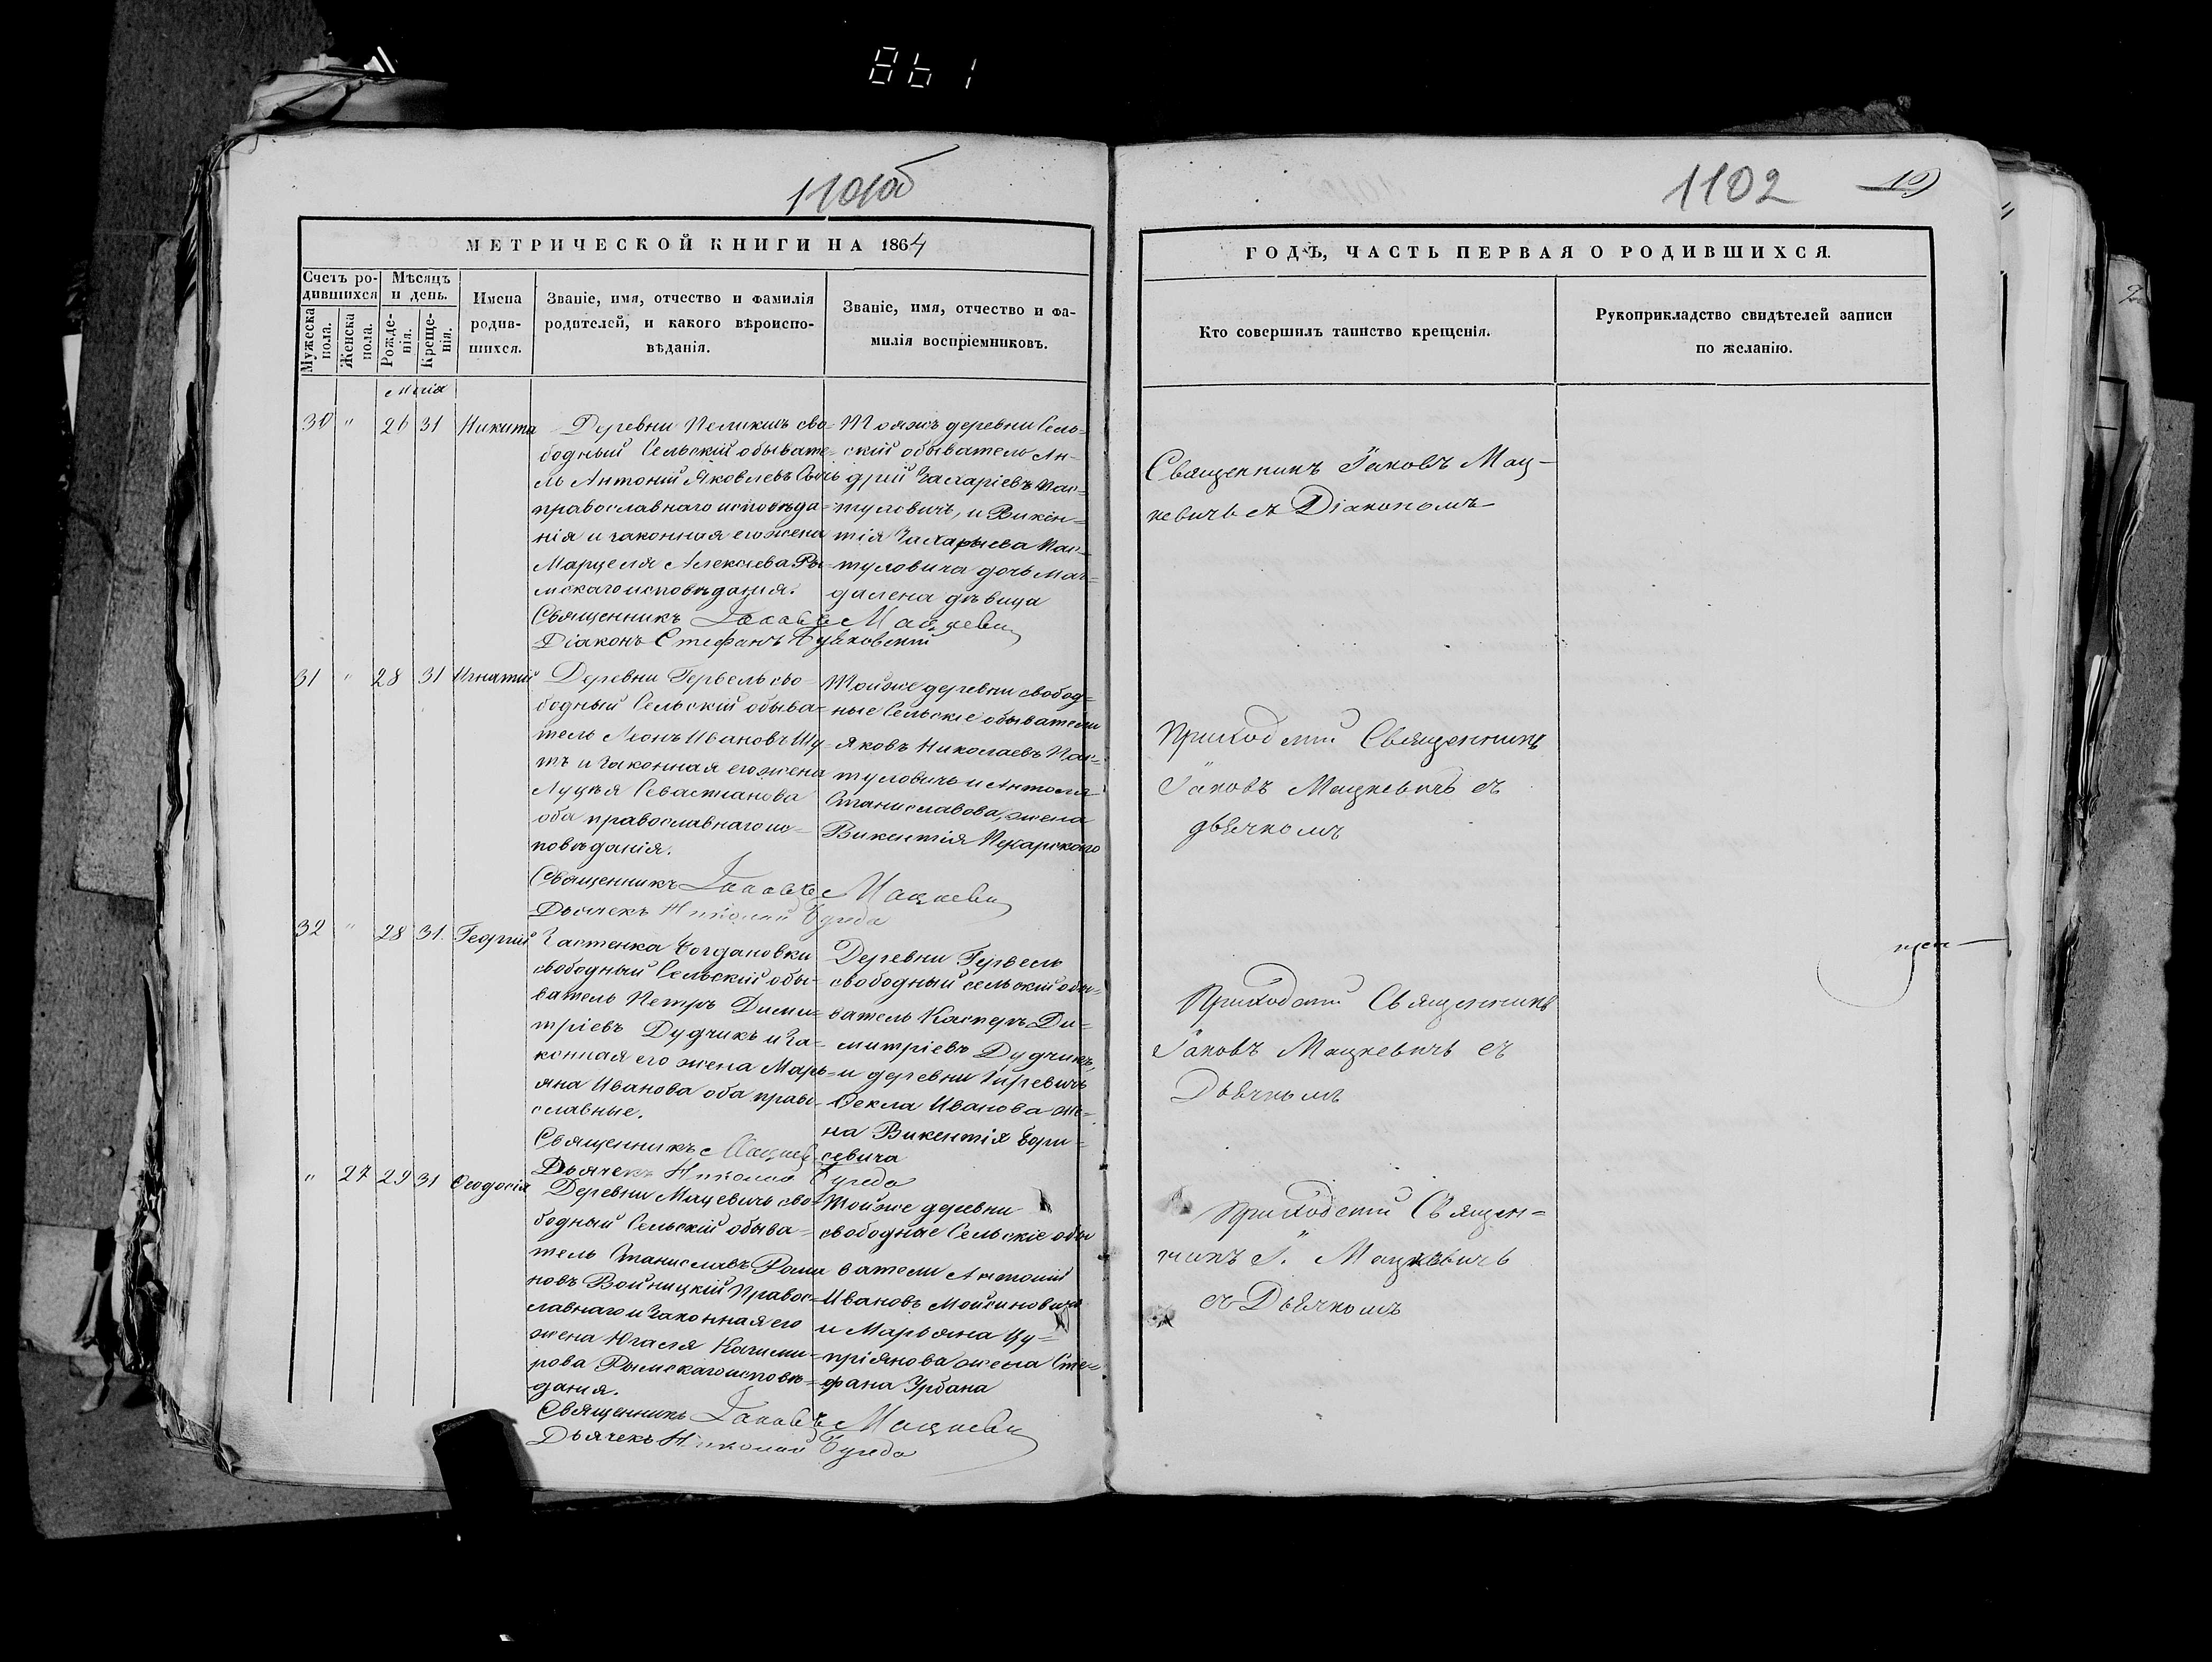 861
1101об
МЕТРИЧЕСКОЙ КНИГИ НА 1864
Счетъ ро-
дившихся
Мѣсяцъ
и день.
Мужеска
пола.
Женска
пола.
Рожде-
нія.
Креще-
нія.
Имена
родив-
шихся.
Званіе, имя, отчество и фамилія
родителей, и какого вѣроиспо-
вѣданія.
Званіе, имя, отчество и фа-
милія воспріемниковъ.
Маія
30 " 26 31 Никита
Деревни Пеликшъ сво-
бодный Сельскій обывате-
ль Антоній Яковлевъ
православнаго исповѣда-
нія и законная его жена
Марцеля Алексѣева Ри-
мскаго исповѣданія.
Священникъ Іаковъ Мацкевич
Діаконъ Стефанъ
Тояжъ деревни Сель-
скій обыватель Ан-
дрей Захаріевъ Пас-
туловичъ, и Викен-
тія Захарьева Пас-
туловича дочь Маг-
далена дѣвица
31 " 28 31 Игнатій
Деревни Гервель сво-
бодный Сельскій обыва-
тель Леонъ Ивановъ Шу-
тъ и законная его жена
Луція Севастианова
оба православнаго ис-
повѣданія.
Священникъ Іаковъ Мацкевич
Дьячекъ Николай
Тойже деревни свобод-
ные Сельскіе обыватели
Яковъ Николаевъ Пас-
туловичъ и Антоля
Станиславова, жена
Викентія Пекарскаго
32 " 28 31. Георгій
Застенка Богдановки
свободный Сельскій обы-
ватель Петръ Дими-
тріевъ Дудчикъ и за-
конная его жена Марь-
яна Иванова оба право-
славные.
Священникъ Мацкев
Дьячекъ Николай
Деревни Гервель
свободный сельскій обы-
ватель Касперъ Ди-
митріевъ Дудчикъ,
и деревни
Ѳекла Иванова же-
на Викентія Бори-
севича
" 27 29 31 Ѳеодосія
Деревни Мацевичъ сво-
бодный Сельскій обыва-
тель Станиславъ Рома
новъ Войницкій Правос-
лавнаго и законная его
жена Юзаля Казими-
рова Римскаго исповѣ-
данія.
Священникъ Іаковъ Мацкевич
Дьячекъ Николай
Тойже деревни
свободные Сельскіе обы
ватели Антоній
Ивановъ Мойсиновичъ
и Марьяна Цу-
пріянова жена Сте-
фана Урбана
1102
19
ГОДЪ, ЧАСТЬ ПЕРВАЯ О РОДИВШИХСЯ.
Кто совершилъ таинство крещенія.
Рукоприкладство свидѣтелей записи
по желанію.
Священникъ Іаковъ Мац-
кевичь съ Діакономъ
Приходскій Священникъ
Іаковъ Мацкевичь съ
дьячкомъ
Приходскій Священникъ
Іаковъ Мацкевичь съ
Дьячкомъ
Приходскій Священ-
никъ І. Мацкевичь
съ Дьячкомъ